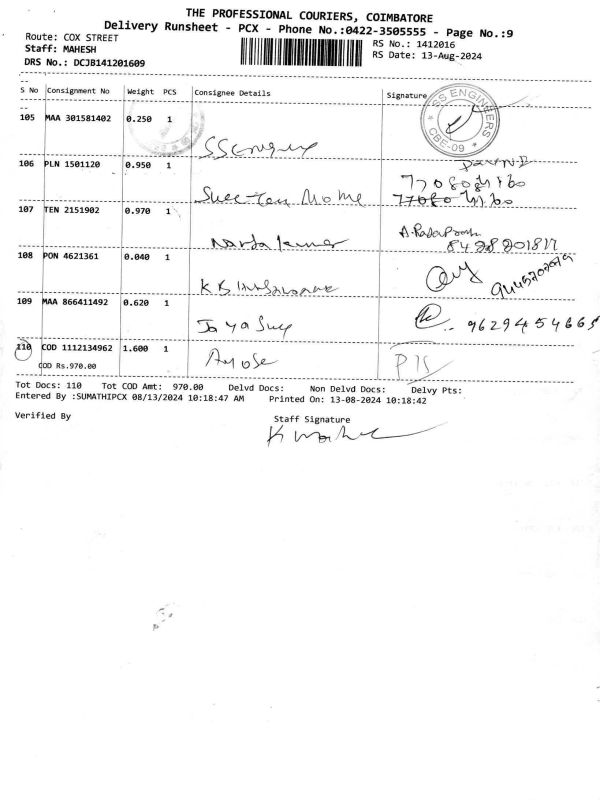 THE PROFESSIONAL COURIERS, COIMBATORE
Delivery Runsheet - PCX - Phone No.:0422-3505555 - Page No.:9
Route: COX STREET
Staff: MAHESH
DRS No.: DCJB141201609
RS No.: 1412016
RS Date: 13-Aug-2024
S No Consignment No Weight PCS Consignee Details Signature
SS ENGINEERS
CBE-09
105 MAA 301581402 0.250 1
106 PLN 1501120 0.950 1
107 TEN 2151902 0.970 1
8428201817
108 PON 4621361 0.040 1
9445702079
109 MAA 866411492 0.620 1
9629454665
110 COD 1112134962 1.600 1
COD Rs.970.00
Tot Docs: 110 Tot COD Amt: 970.00 Delvd Docs: Non Delvd Docs: Delvy Pts:
Entered By :SUMATHIPCX 08/13/2024 10:18:47 AM Printed On: 13-08-2024 10:18:42
Verified By
Staff Signature